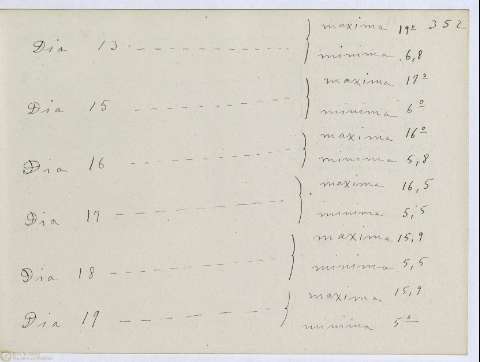 352
maxima 19º
Dia 13 - - - - - - - -
minima 6,8
maxima 17º
Dia 15 - - - - - - - -
minima 6º
maxima 16º
Dia 16 - - - - - - - -
minima 5,8
maxima 16,5
Dia 17 - - - - - - - -
minima 5,5
maxima 15,9
Dia 18 - - - - - - - -
minima 5,5
maxima 15,9
Dia 19 - - - - - - - -
minima 5º